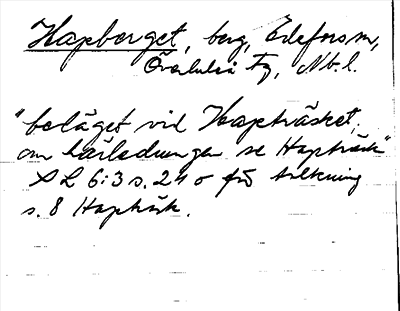 Hapberget, berg, Edefors sn,
Överluleå tg, Nbl.
"beläget vid Hapträsket;
om härledningen se Hapträsk"
SL 6:3 s. 24 o för tolkning
s. 8 Hapträsk.